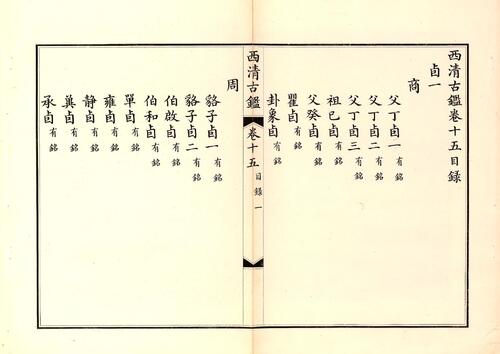 西清古鑑卷十五目録
卣一
商
父丁卣一有銘
父丁卣二有銘
父丁卣三有銘
祖巳卣有銘
父癸卣有銘
瞿卣有銘
卦象卣有銘
西清古鑑 卷十五 目録 一
周
貉子卣一有銘
貉子卣二有銘
伯啟卣有銘
伯和卣有銘
單卣有銘
雍卣有銘
静卣有銘
冀卣有銘
承卣有銘